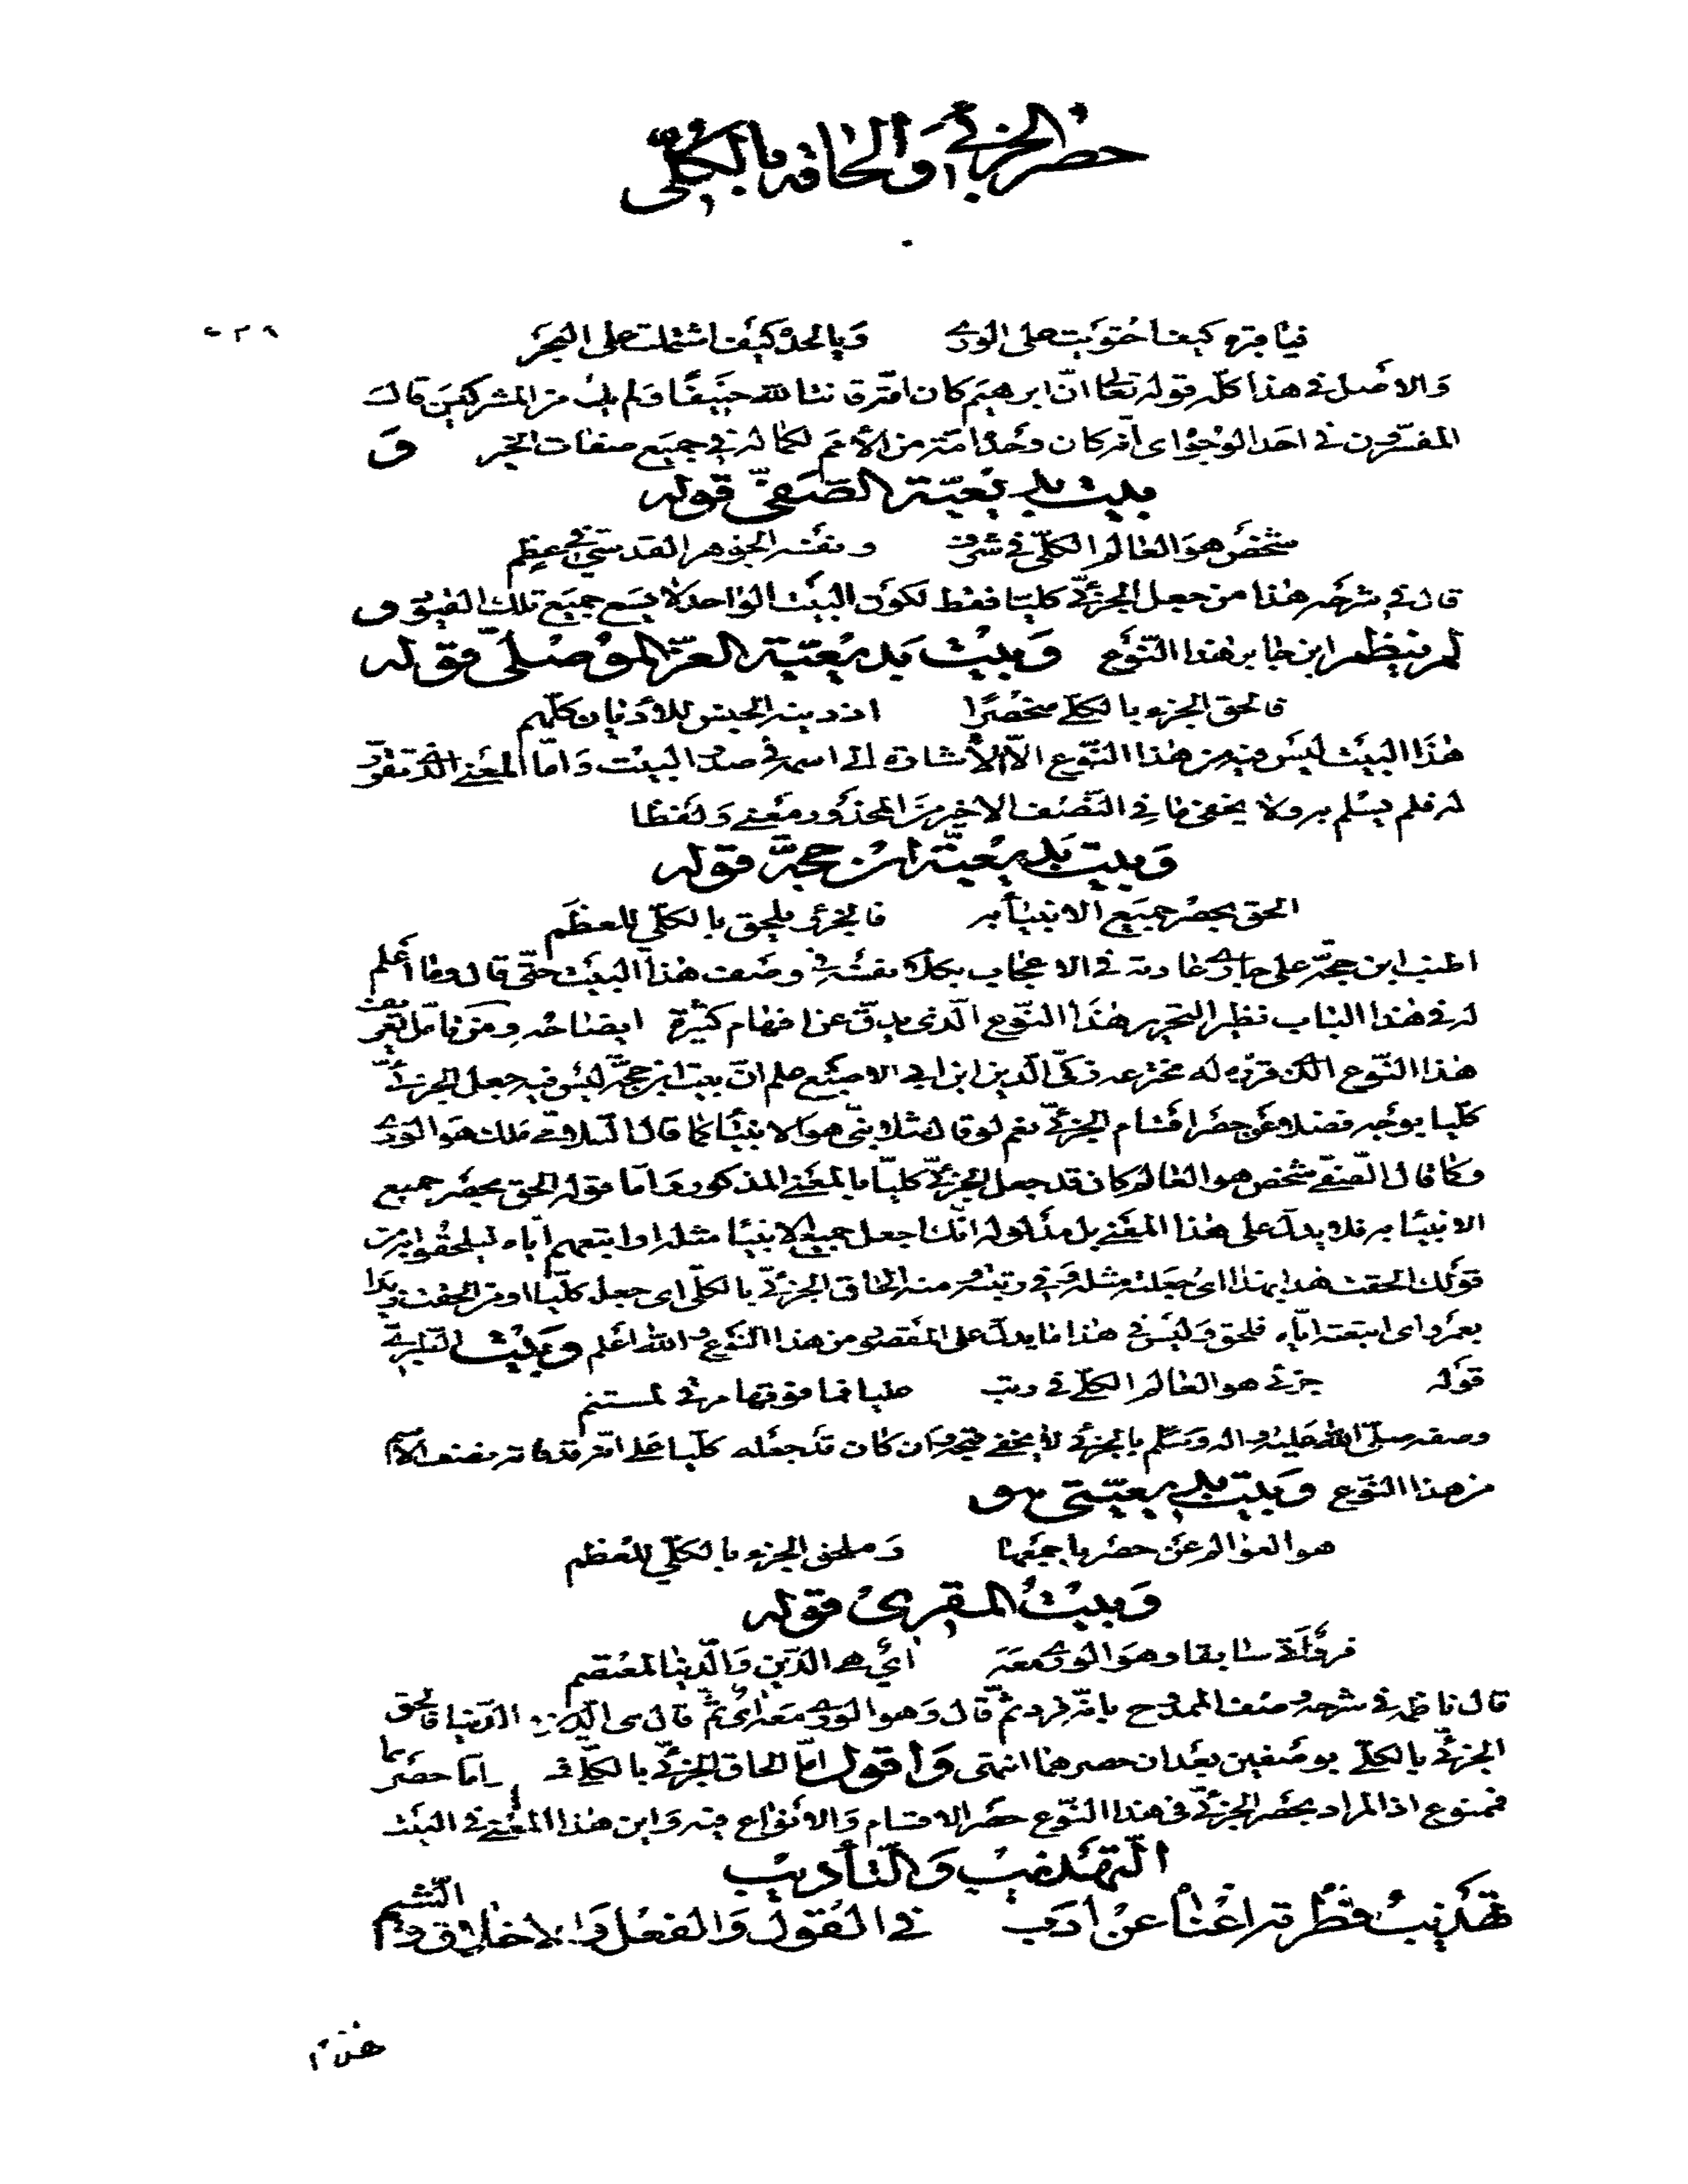 حصر الجزئي والحاقه بالكلي
فيا قبره كيف احتويت على الورى وبالحد كيف اشتملت على البحر
والاصل في هذا كله قوله تعالى انّ ابرهيم كان امّة قانتا لله حنيفًا ولم يك من المشركين قالت
المفسّرون في احد الوجوه اى انّه كان وحده امّة من الأمم لكماله في جميع صفات الخير و
بيت بديعيّة الصفىّ قوله
شخص هو العالم الكلّي في شرف ونفسه الجوهر القدسيّ في عظم
قال في شرحه هذا من جعل الجزئيّ كليّا فقط لكون البيت الواحد لا يسع جميع تلك القيود و
لم ينظم ابن جابر هذا النّوع وبيت بديعيّة العزّ الموصليّ قوله
فالحق الجزء بالكلّي منحصرًا اذ دينه الجنس للأديان كلّهم
هذا البيت ليس فيه من هذا النّوع الّا الأشارة الى اسمه في صدر البيت وامّا المعنى الّذي تفرّد
له فلم يسلم به ولا يخفى ما في النّصف الاخير من المحذور معنى ولفظا
وبيت بديعيّة ابن حجّة قوله
الحق بحصر جميع الانبيا به فالجزئي يلحق بالكلّي للعظم
اطنب ابن حجّة على جارى عادته في الاعجاب بكلام نفسه في وصف هذا البيت حتّى قال وما أعلم
له في هذا الباب نظيرا لتحرير هذا النّوع الّذى يدقّ عن افهام كثيرة ايضاحه ومن تامّل تعريف
هذا النّوع الّذى قرّره له مخترعه زكىّ الدّين ابن ابى الاصبع علم انّ بيت ابن حجّة ليس فيه جعل الجزئيّ
كلّيا بوجه فضلا عن حصر اقسام الجزئيّ نعم لو قال مثلا نبىّ هو الانبيا كما قال السلامىّ ملك هو الورى
وكما قال الصّفىّ شخص هو العالم كان قد جعل الجزئيّ كليّا بالمعنى المذكور وامّا قوله الحق بحصر جميع
الانبيا به فلا يدلّ على هذا المعنى بل مدلوله انّك اجعل جميع الانبيا مثله او اتبعهم ايّاه ليلحقوا به من
قولك الحقت هذا بهذا اى جعلته مثله وفي رتبته ومنه الحاق الجزئيّ بالكلّي اى جعله كلّيا او من الحقت زيدا
بعمرو اى اتبعته ايّاه فلحق وليس في هذا ما يدلّ على المقصود من هذا النّوع والله اعلم وبيت الطبريّ
قوله جزئي هو العالم الكلّي في رتب عليا فما فوقها مرقى لمستنم
وصفه صلّى الله عليه واله وسلّم بالجزئي لا يخفى قبحه وان كان قد جعله كلّيا على انّه قد فاته نصف الاسم
من هذا النّوع وبيت بديعيّتى هو
هو العوالم عن حصر باجمعها وملحق الجزء بالكلّي للعظم
وبيت المقرى قوله
فرد سابقا وهو الورى معه اي هم الدّين والدّنيا لمعتصم
قال ناظمه في شرحه وصف الممدوح بانّه فرد ثمّ قال وهو الورى معه اى ثمّ قال هى الدّين والدّنيا فالحق
الجزئيّ بالكلّي بوصفين بعد ان حصرهما انتهى واقول امّا الحاق الجزئيّ بالكلّي فـ وامّا حصرهما
فممنوع اذ المراد بحصر الجزئيّ في هذا النّوع حصر الاقسام والانواع فيه واين هذا المعنى في البيت
التهذيب والتأديب
تهذيب فطرته اغناه عن ادب في القول والفعل والاخلاق والشيم